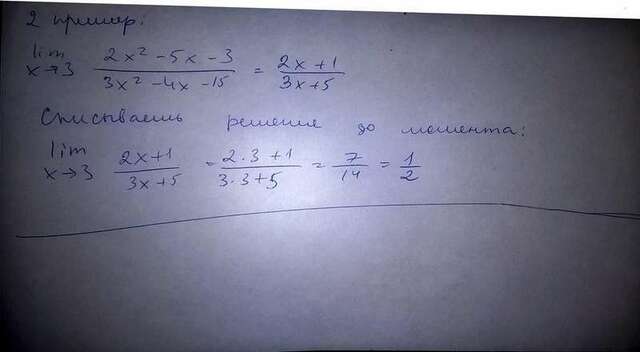 2 пример:
lim x→3 (2x² - 5x - 3)/(3x² - 4x - 15) = (2x + 1)/(3x + 5)
Списываешь решение до момента:
lim x→3 (2x+1)/(3x+5) = (2·3+1)/(3·3+5) = 7/14 = 1/2